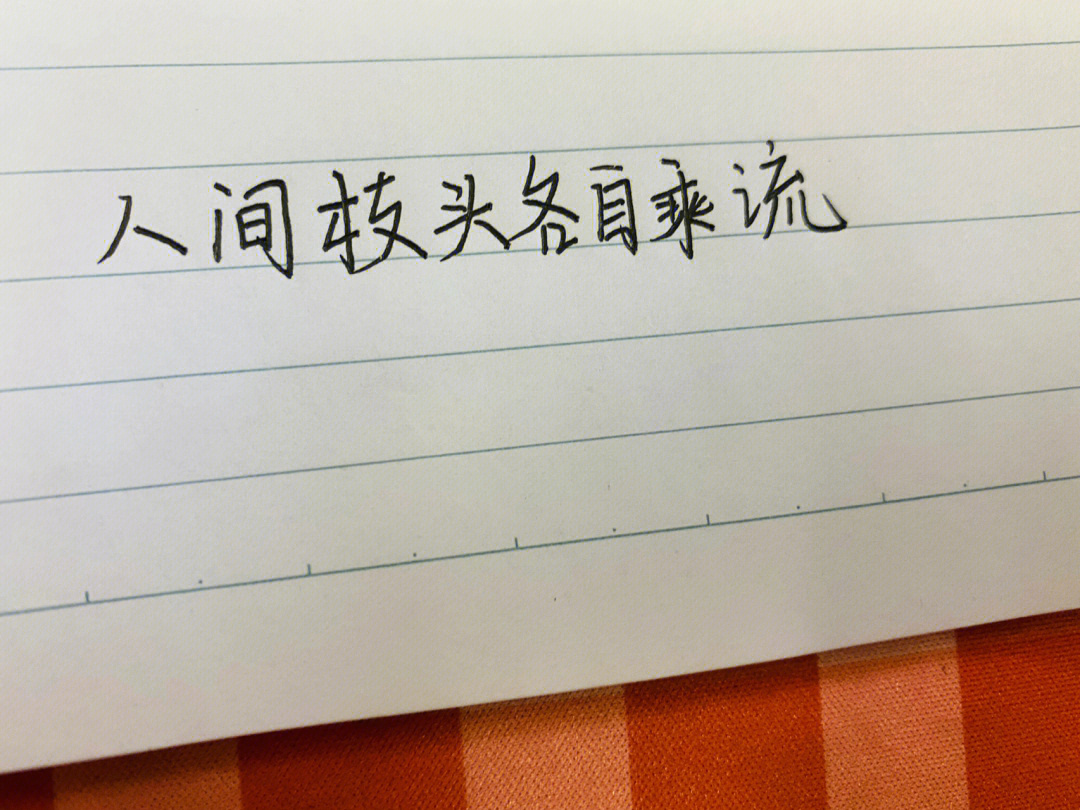 人间枝头各自乘流